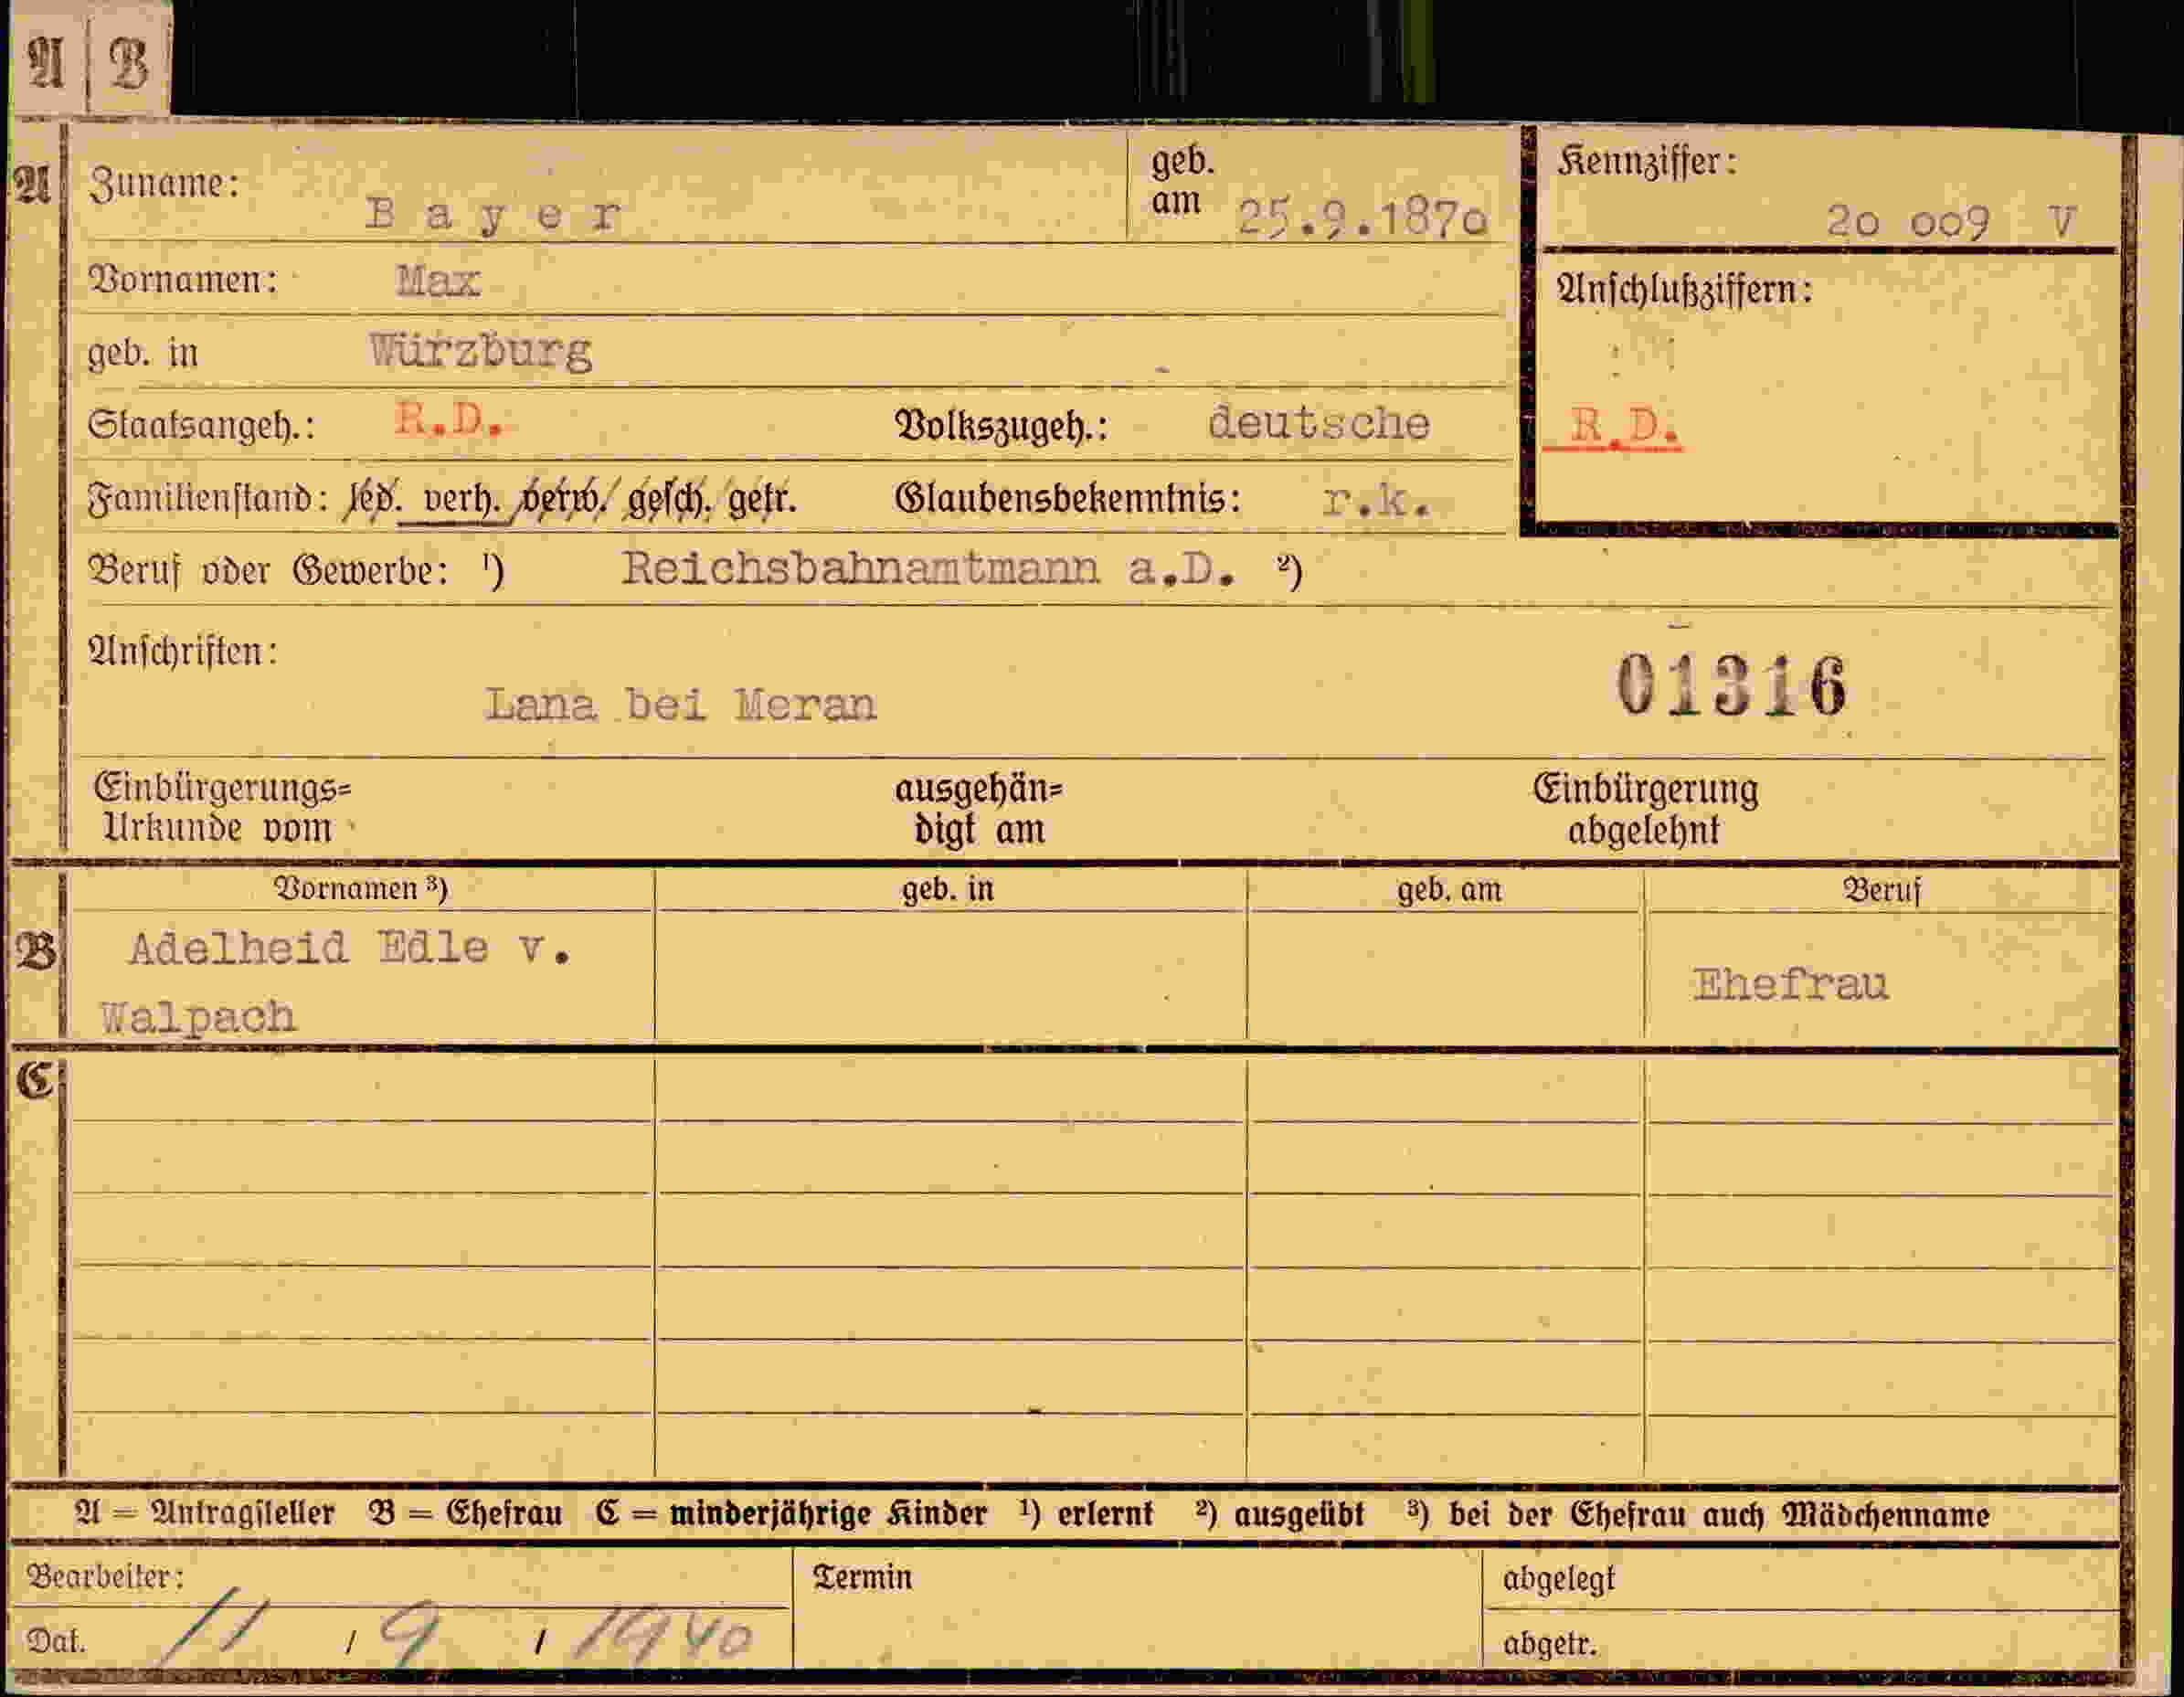 A B
A Zuname: Bayer geb. am 25.9.1870
Kennziffer: 20 009 V
Vornamen: Max
Anschlußziffern:
geb. in Würzburg
Staatsangeh.: R.D. Volkszugeh.: deutsche
R.D.
Familienstand: led. verh. verw. gesch. getr. Glaubensbekenntnis: r.k.
Beruf oder Gewerbe: ¹) Reichsbahnamtmann a.D. ²)
Anschriften:
01316
Lana bei Meran
Einbürgerungs= ausgehän= Einbürgerung
Urkunde vom digt am abgelehnt
Vornamen ³) geb. in geb. am Beruf
B Adelheid Edle v.
Ehefrau
Walpach
C
A = Antragsteller B = Ehefrau C = minderjährige Kinder ¹) erlernt ²) ausgeübt ³) bei der Ehefrau auch Mädchenname
Bearbeiter: Termin abgelegt
Dat. 11 / 9 / 1940 abgetr.